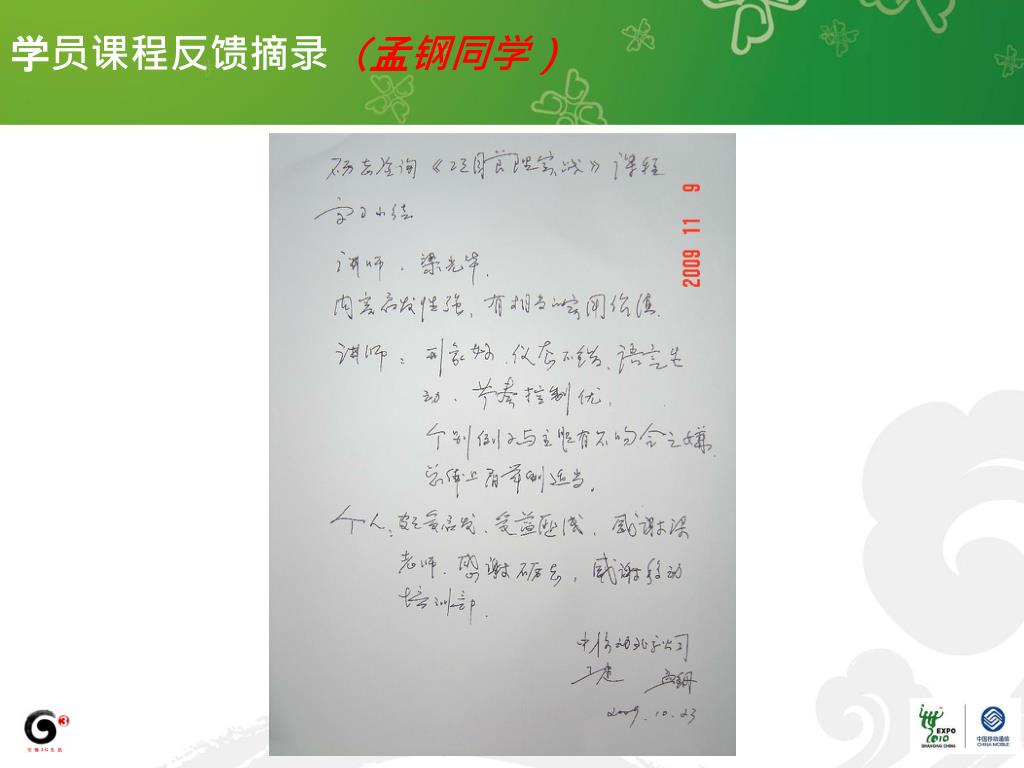 学员课程反馈摘录 （孟钢同学）
砺志咨询《项目管理实战》课程
学习小结
2009 11 9
讲师：梁光华.
内容启发性强，有相当的实用价值.
讲师：形象好、仪态不错、语言生
动、节奏控制优，
个别例子与主题有不吻合之嫌，
总体上看举例适当。
个人：颇受启发、受益匪浅，感谢梁
老师，感谢砺志，感谢移动
培训部.
中移动北京公司
工建 孟钢
2009.10.23
引领3G生活
EXPO
2010
SHANGHAI CHINA
中国移动通信
CHINA MOBILE